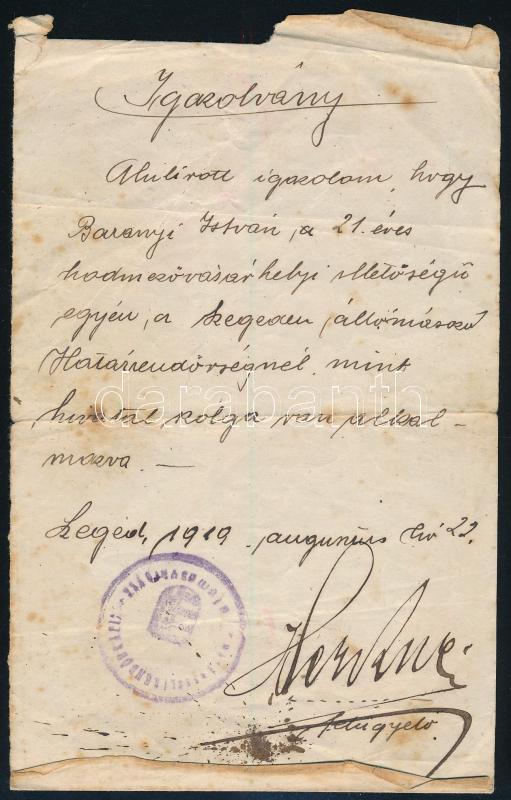 Igazolvány
Alulirott igazolom, hogy
Baranyi István, a 21. éves
hodmezővásárhelyi illetőségü
egyén, a szegeden állomásozó
Határrendőrségnél, mint
hivatal szolga van alkal-
mazva. —
darabanth
Szeged, 1919. augusztus hó 22.
felügyelő.